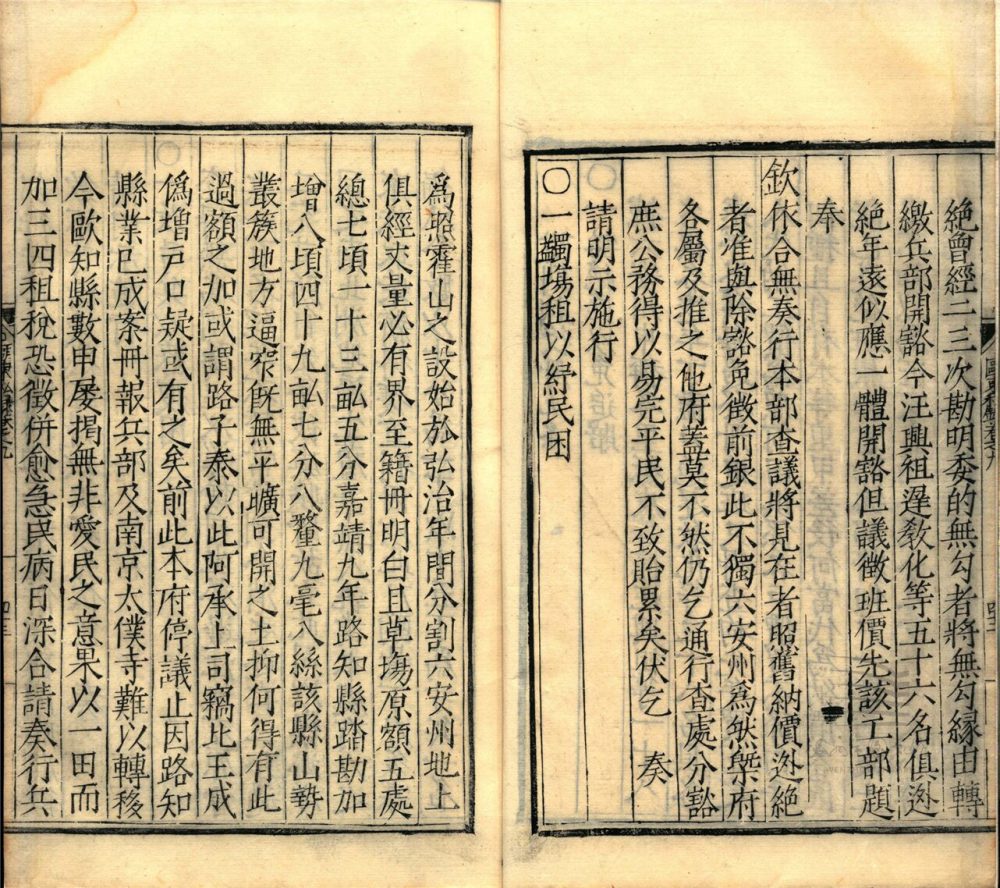 絶曾經二三次勘明委的無勾者將無勾縁由轉
繳兵部開豁今汪興祖遅敎化等五十六名俱迯
絶年遠似應一體開豁但議徵班價先該工部題
奉
欽依合無奏行本部查議將見在者照舊納價迯絶
者准與除豁免徵前銀此不獨六安州爲然槩府
各屬及推之他府蓋莫不然仍乞通行查處分豁
庶公務得以易完平民不致貽累矣伏乞 奏
請明示施行
〇一蠲塲租以紓民困
爲照霍山之設始於弘治年間分割六安州地土
俱經丈量必有界至籍冊明白且草塲原額五處
總七頃一十三畝五分嘉靖九年路知縣踏勘加
增八頃四十九畝七分八釐九毫八絲該縣山勢
叢簇地方逼窄旣無平曠可開之土抑何得有此
過額之加或謂路子泰以此阿承上司竊比王成
僞增戸口疑或有之矣前此本府停議止因路知
縣業巳成案冊報兵部及南京太僕寺難以轉移
今歐知縣數申屡揭無非愛民之意果以一田而
加三四租稅恐徵併愈急民病日深合請奏行兵